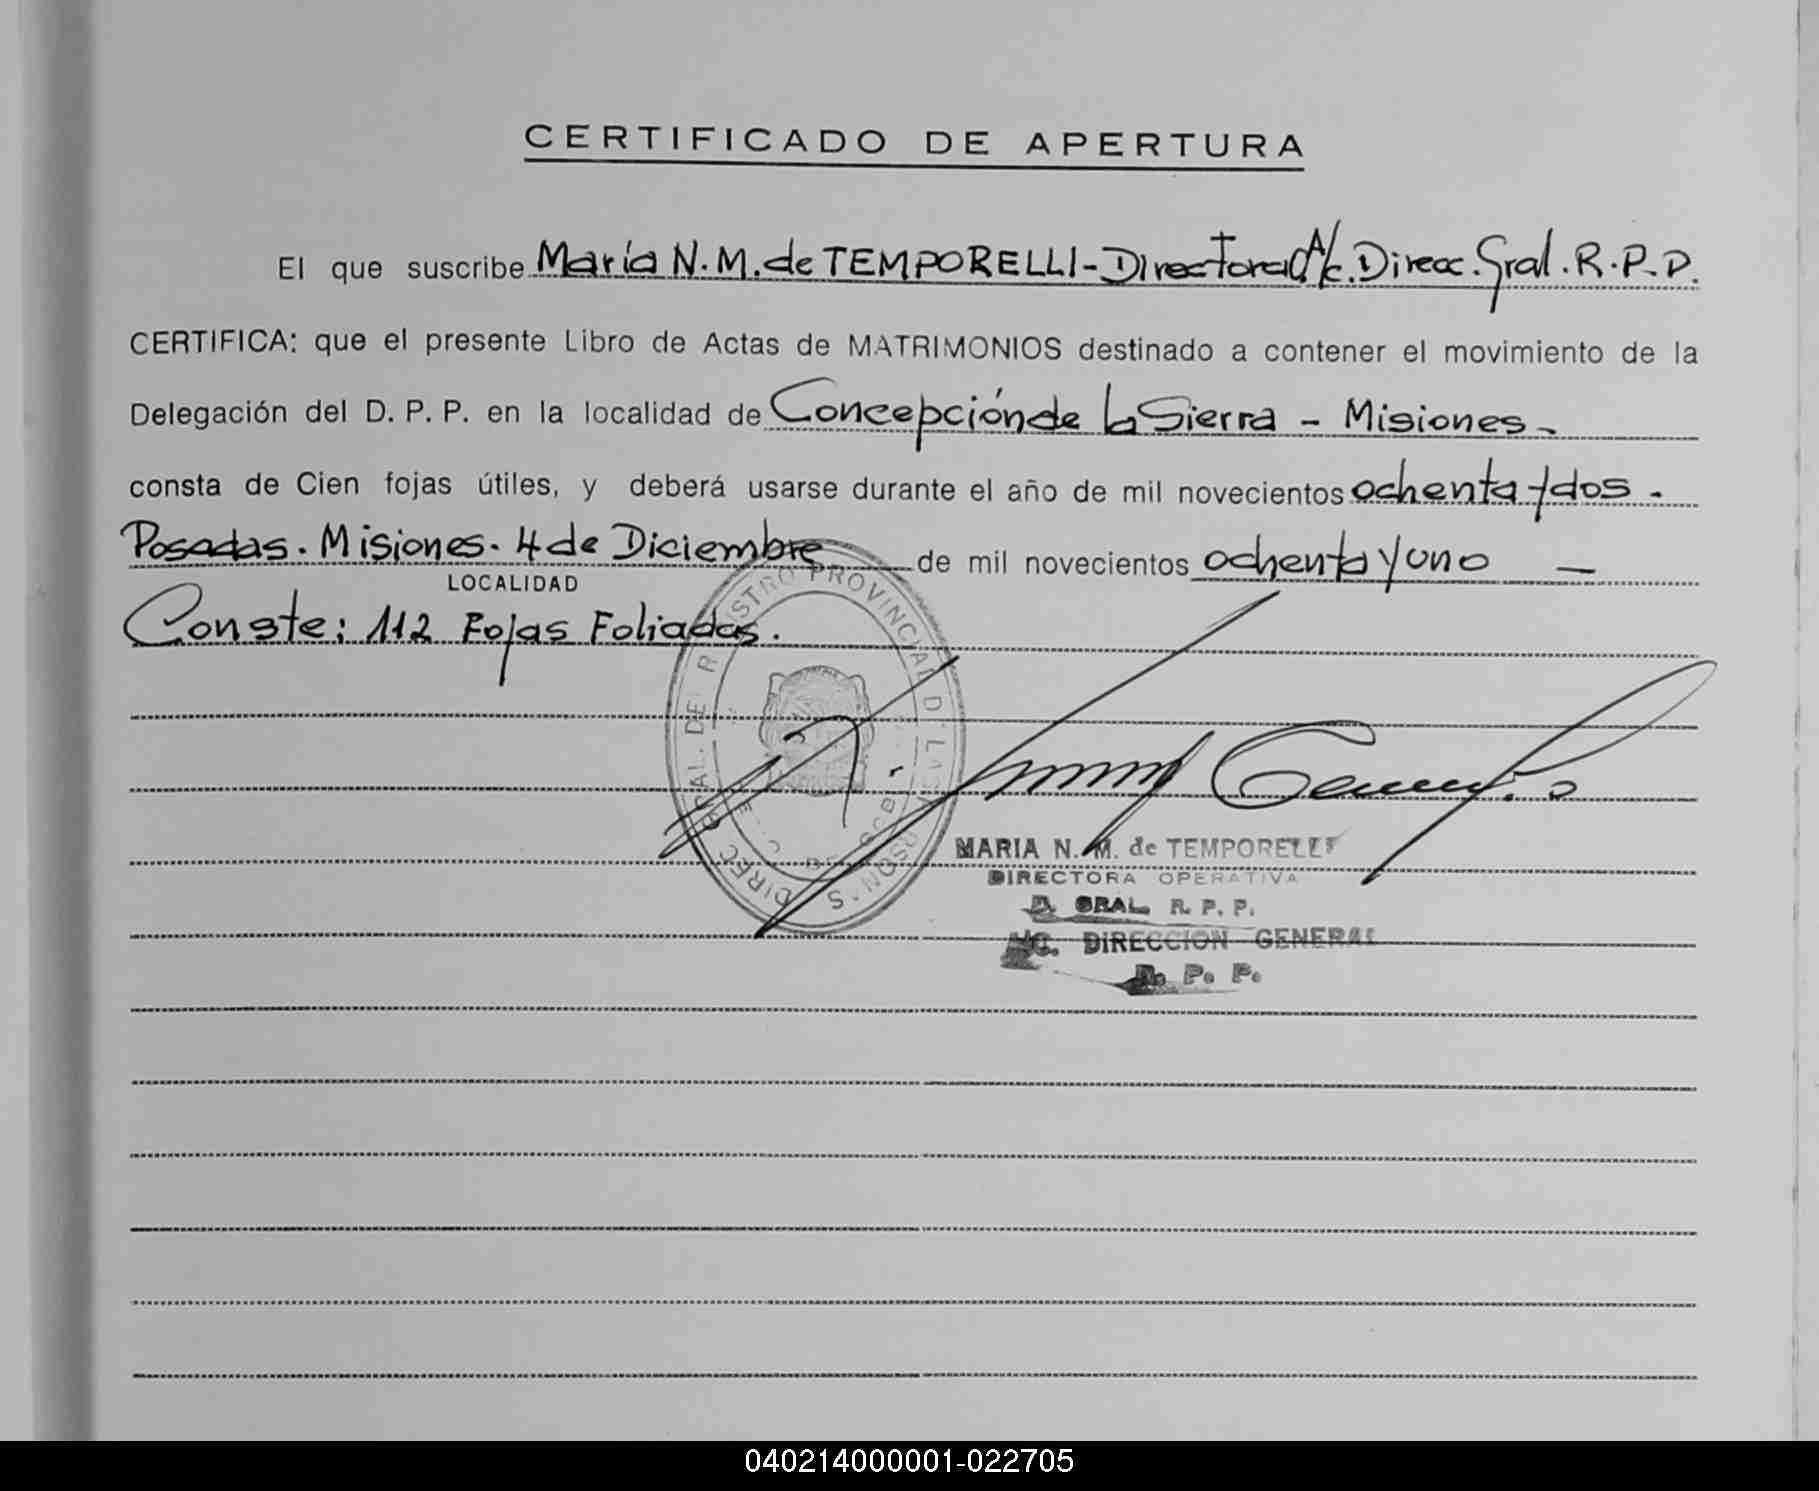 CERTIFICADO DE APERTURA
El que suscribe María N. M. de TEMPORELLI - Directora A/c. Direcc. Gral. R. P. P.
CERTIFICA: que el presente Libro de Actas de MATRIMONIOS destinado a contener el movimiento de la
Delegación del D. P. P. en la localidad de Concepción de la Sierra - Misiones -
consta de Cien fojas útiles, y deberá usarse durante el año de mil novecientos ochenta y dos.
Posadas. Misiones. 4 de Diciembre de mil novecientos ochenta y uno —
LOCALIDAD
Conste: 112 Fojas Foliadas.
MARIA N. M. de TEMPORELLI
DIRECTORA OPERATIVA
D. GRAL. R. P. P.
A/C. DIRECCION GENERAL
R. P. P.
040214000001-022705